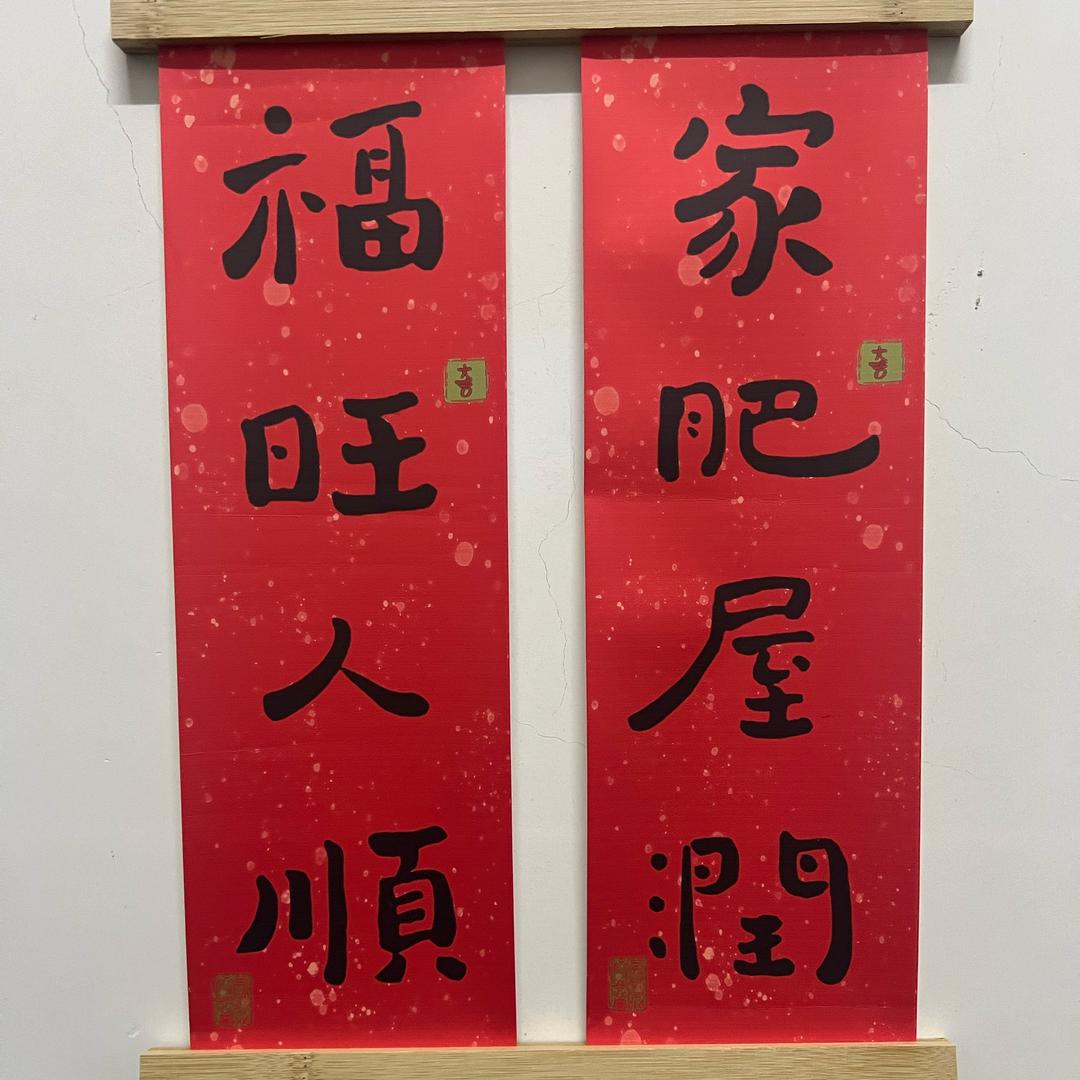 家肥屋潤
大吉
福旺人順
大吉